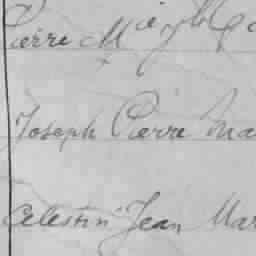 Pierre M
Joseph Pierre Ma
Celestin Jean Mar